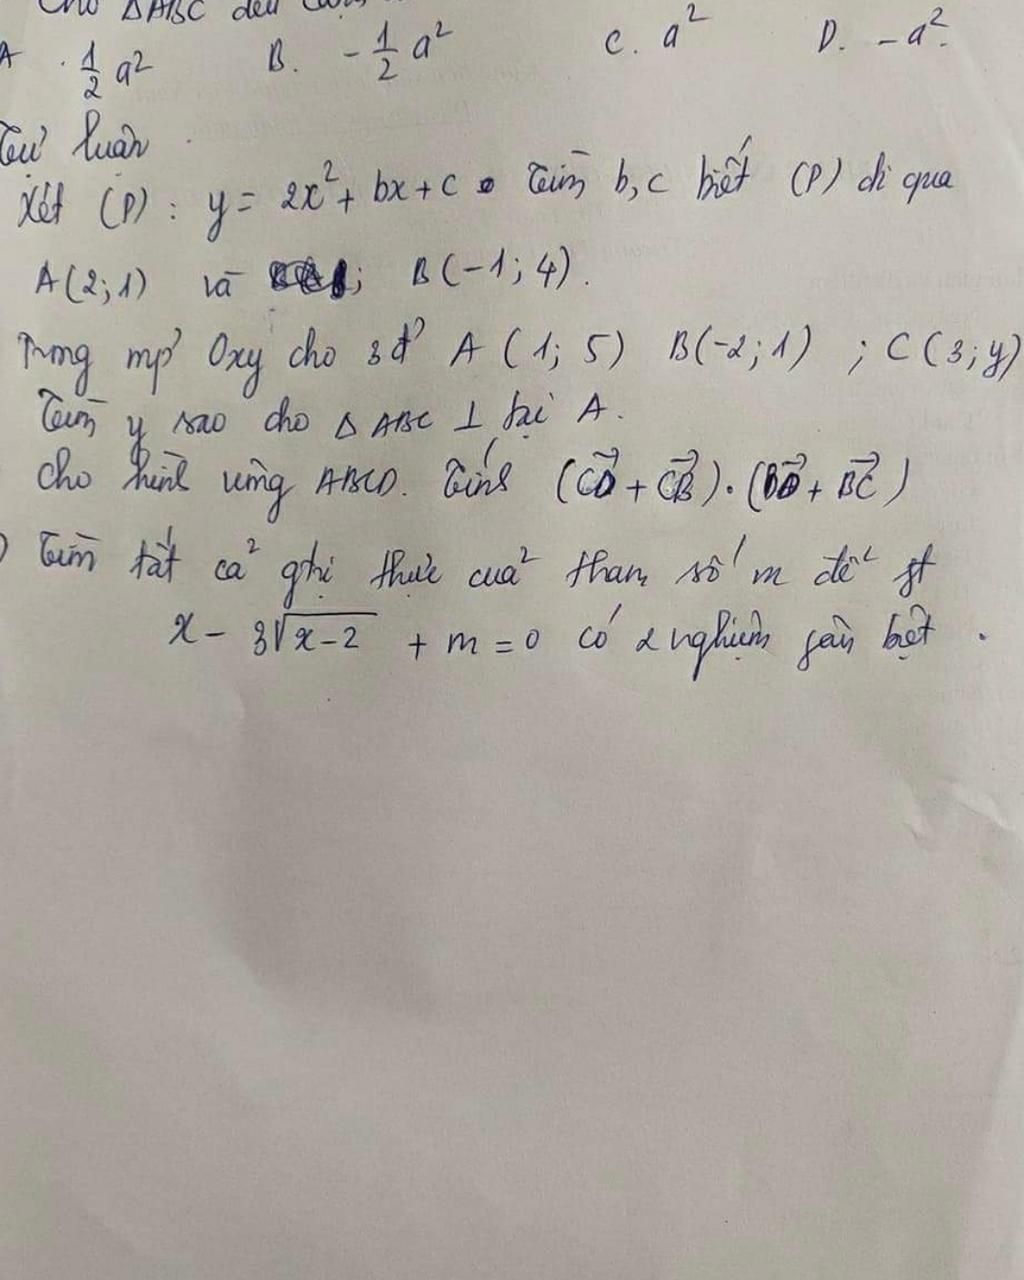 Cho △ABC đều cạnh
A. 1/2 a² B. -1/2 a² C. a² D. -a².
Tự luận
Xét (P): y = 2x² + bx + c. Tìm b, c biết (P) đi qua
A(2; 1) và ; B(-1; 4).
Trong mp' Oxy cho 3 đ' A (1; 5) B(-2; 1) ; C (3; y)
Tìm y sao cho △ ABC ⊥ tại A.
Cho hình vuông ABCD. Tính (CD + CB).(BD + BC)
) Tìm tất cả giá thực của tham số m để pt
x - 3√(x-2) + m = 0 có 2 nghiệm phân biệt .